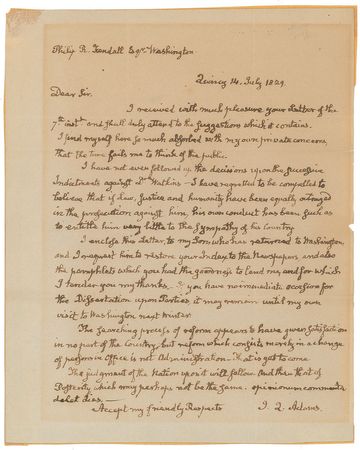 Philip R. Fendall Esqr. Washington
Quincy 14. July 1829.
Dear Sir.
I received with much pleasure your Letter of the
7th. instt. and shall duly attend to the suggestions which it contains.
I find myself here so much absorbed with my own private concerns,
that the time fails me to think of the public.
I have not even followed up the decisions upon the successive
Indictments against Dr. Watkins — I have regretted to be compelled to
believe that if law, Justice and humanity have been equally outraged
in the prosecution against him, his own conduct has been such as
to entitle him very little to the sympathy of his Country.
I enclose this Letter to my Son who has returned to Washington,
and I request him to restore your Index to the Newspapers and also
the pamphlets which you had the goodness to lend me, and for which
I tender you my thanks — If you have no immediate occasion for
the Dissertation upon Parties, it may remain until my own
visit to Washington next Winter.
The searching process of reform appears to have given satisfaction
in no part of the Country, but reform which consists merely in a change
of persons in Office is not Administration — That is yet to come
The judgment of the Nation upon it will follow. And then that of
Posterity which may perhaps not be the same. opinionum commenta
delet dies. —
Accept my friendly Respects
J. Q. Adams.